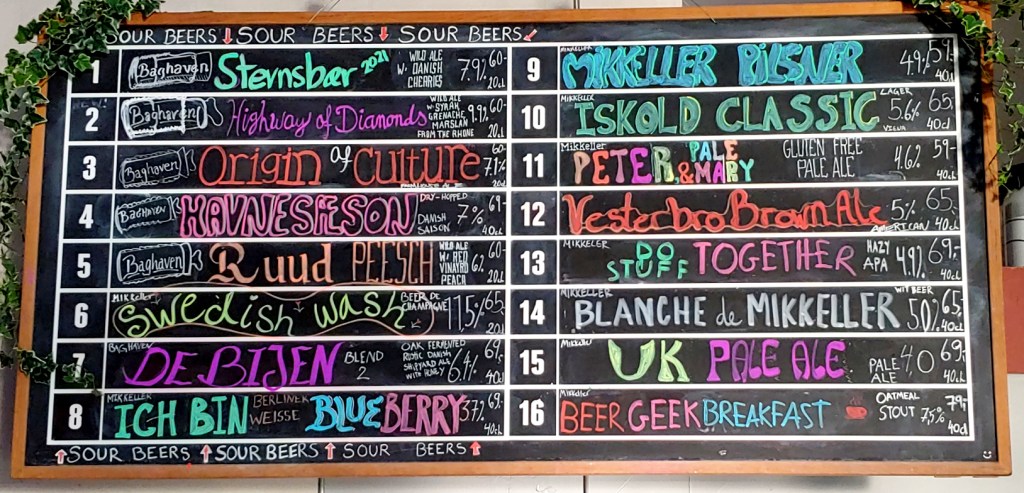 SOUR BEERS SOUR BEERS SOUR BEERS
1 Baghaven Sternsbær 2021 WILD ALE W. DANISH CHERRIES 7.9% 60- 20cl
2 Baghaven Highway of Diamonds WILD ALE W. SYRAH, GRENACHE, MARSLAN FROM THE RHONE 9.9% 60- 20cl
3 Baghaven Origin of Culture 7.1% 60- 20cl
4 BAGHAVEN HAVNESÆSON DRY-HOPPED DANISH SAISON 7% 69- 40cl
5 Baghaven Ruud PEESCH WILD ALE W. RED VINAYRD PEACH 6% 60- 20cl
6 MIKKELLER Swedish wash BEER DE CHAMPAGNE 11,5% 65,- 20cl
7 BAGHAVEN DE BIJEN BLEND 2 OAK FERMENTED RUSTIC DANISH SHIPYARD ALE WITH HONEY 6.4% 69,- 40cl
8 MIKKELLER ICH BIN BERLINER WEISSE BLUEBERRY 3,7% 69.- 40cl
SOUR BEERS SOUR BEERS SOUR BEERS
9 MIKKELLER MIKKELLER PILSNER 4.9% 59,- 40cl
10 MIKKELLER ISKOLD CLASSIC LAGER 5.6% 65,- 40cl
11 Mikkeller PETER, PALE & MARY GLUTEN FREE PALE ALE 4,6% 59- 40cl
12 Vesterbro Brown Ale 5% AMERICAN 65,- 40cl
13 MIKKELLER DO STUFF TOGETHER HAZY APA 4.9% 69,- 40cl
14 MIKKELLER BLANCHE de MIKKELLER WITBEER 5.0% 65,- 40cl
15 Mikkeller UK PALE ALE PALE ALE 4.0 69,- 40cl
16 Mikkeller BEER GEEK BREAKFAST OATMEAL STOUT 7,5% 79,- 40cl